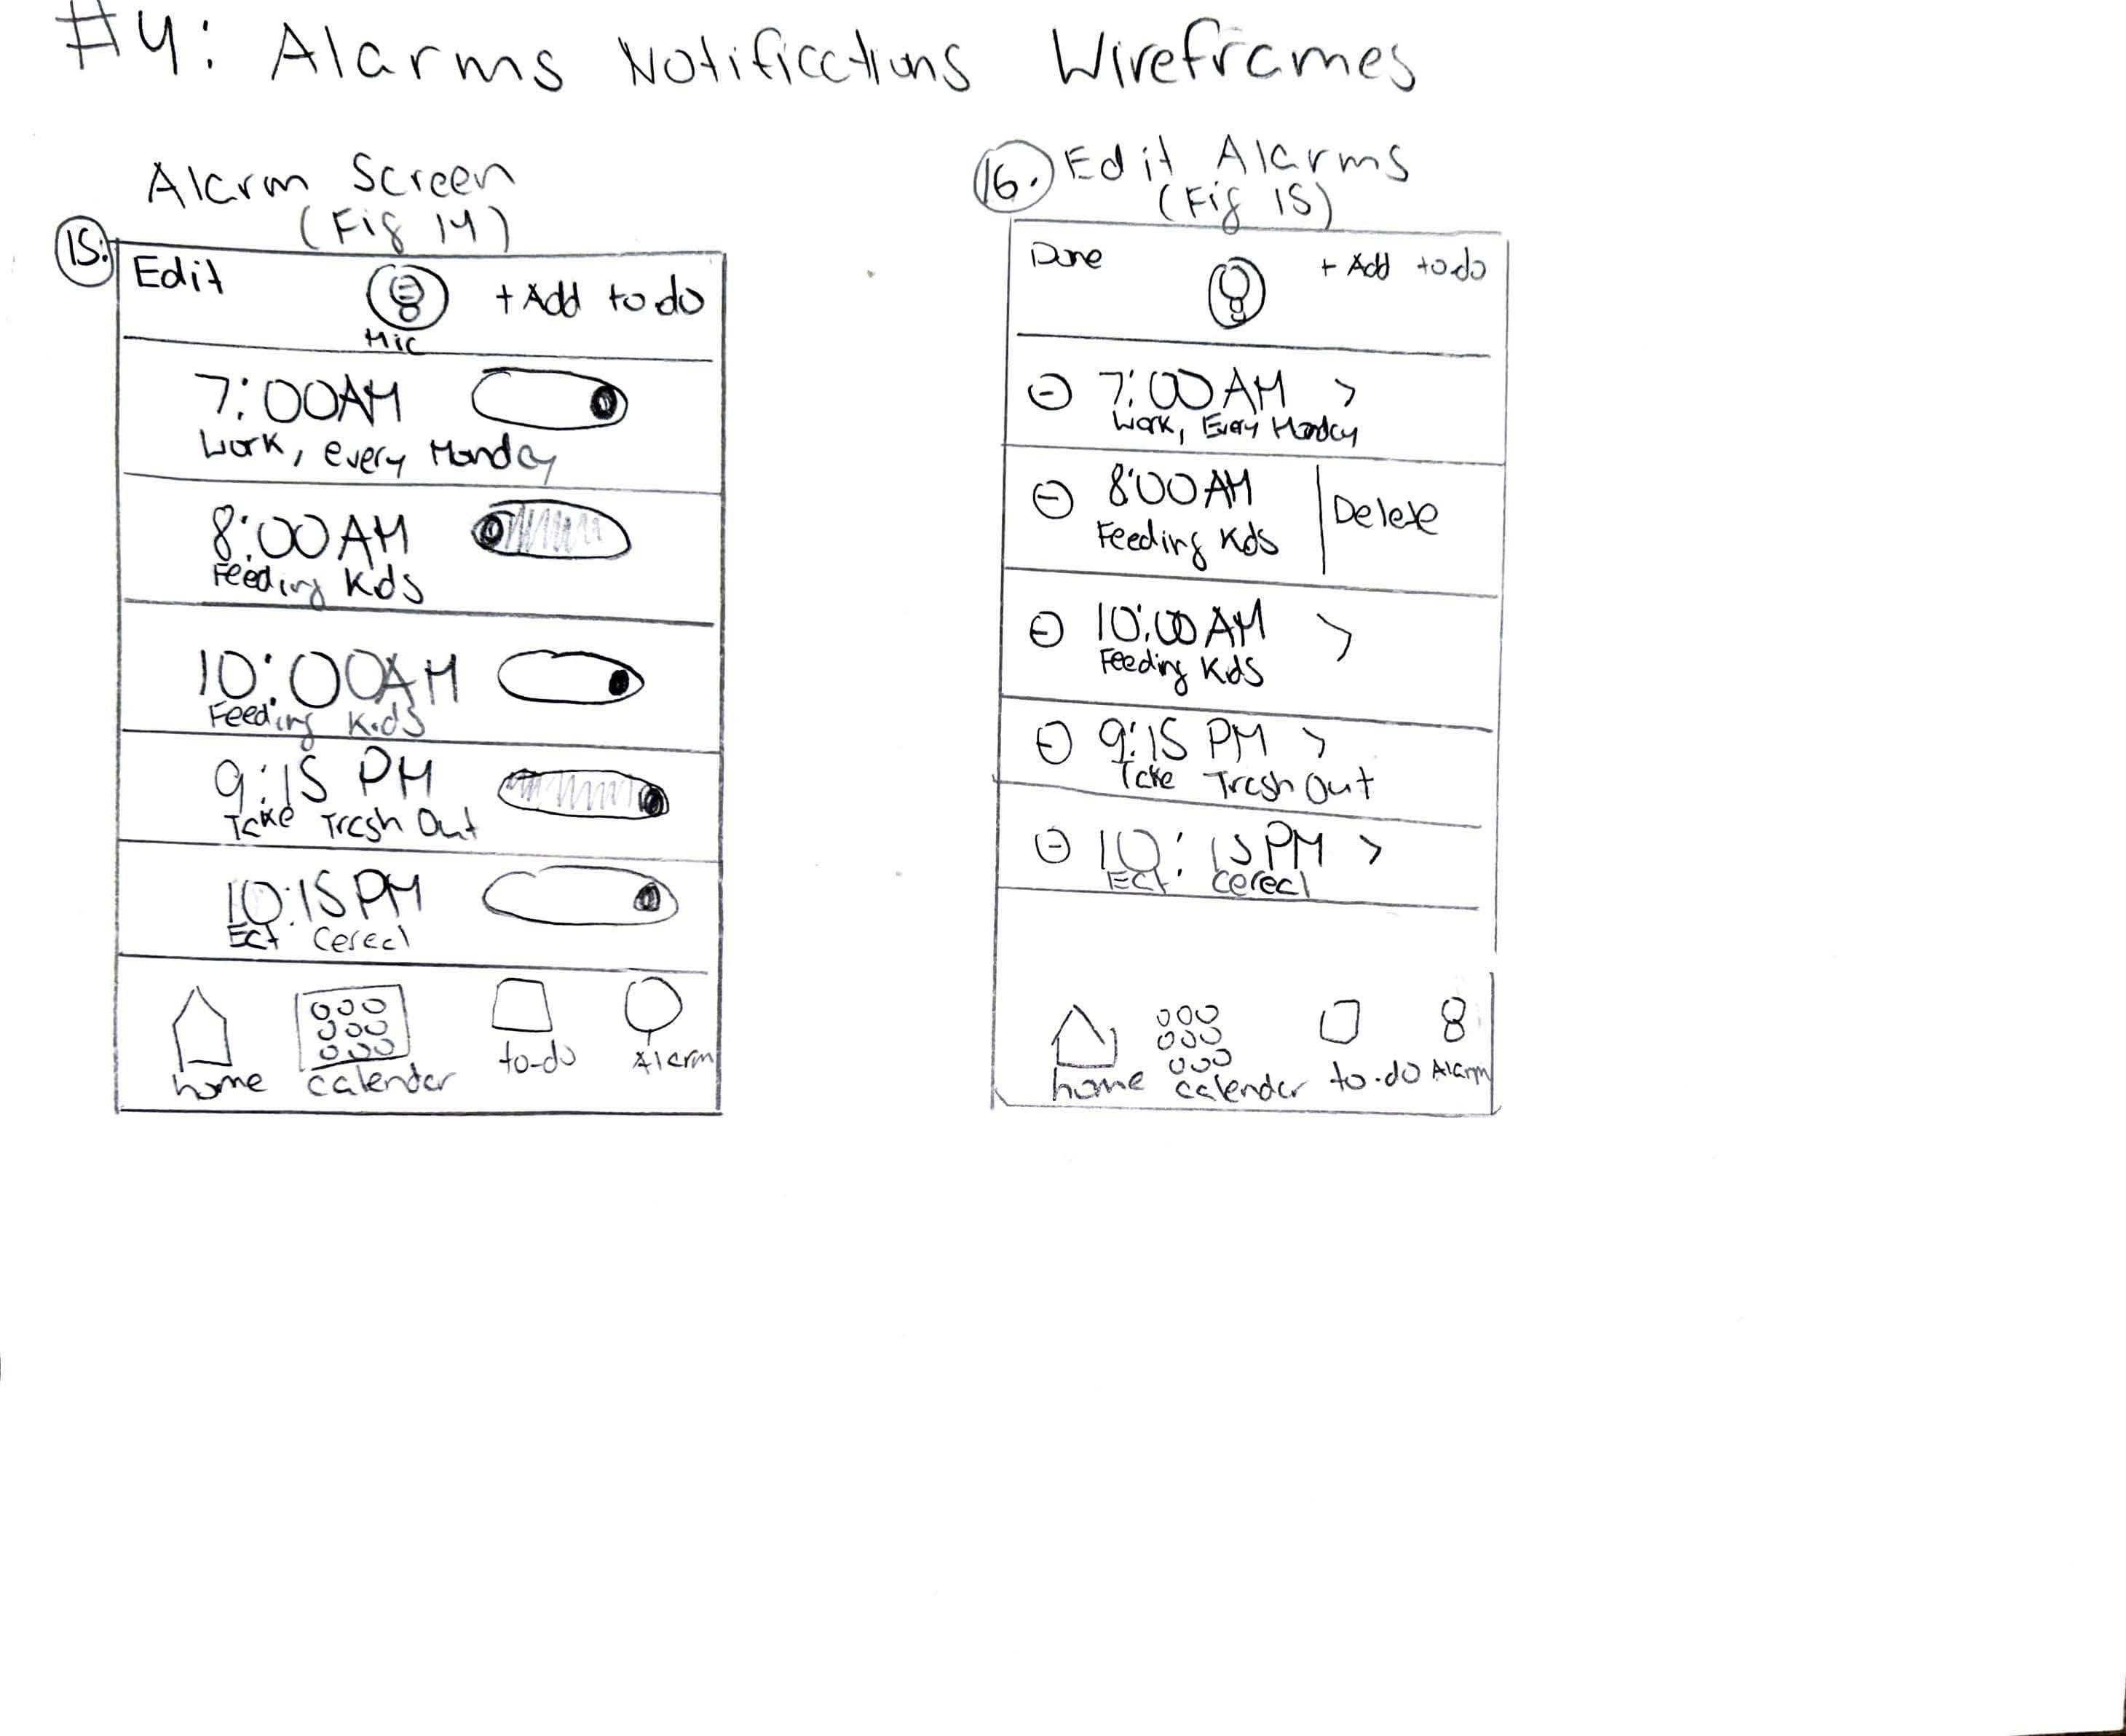 #4: Alarms Notifications Wireframes
Alarm Screen
(Fig 14)
15.
Edit
+ Add to do
Mic
7:00AM
Work, every Monday
8:00 AM
Feeding Kids
10:00AM
Feeding Kids
9:15 PM
Take Trash Out
10:15PM
Eat Cereal
home calendar to-do Alarm
16. Edit Alarms
(Fig 15)
Done
+ Add to do
7:00 AM >
Work, Every Monday
8:00 AM
Feeding Kids
Delete
10:00 AM >
Feeding Kids
9:15 PM >
Take Trash Out
10:15PM >
Eat Cereal
home calendar to-do Alarm